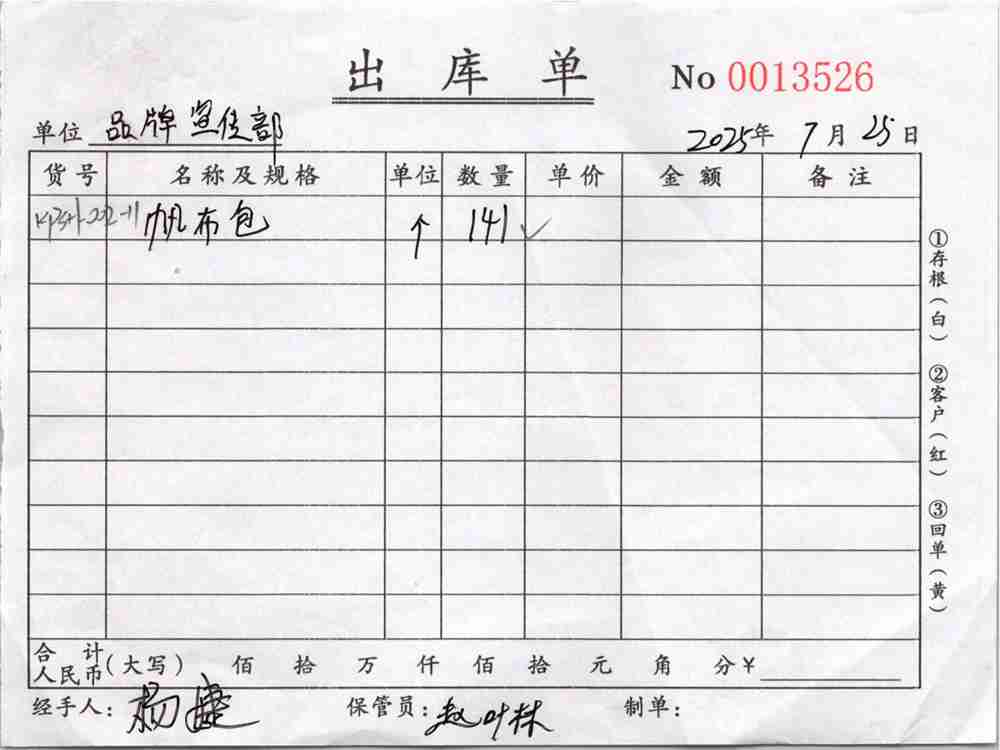 出库单 No 0013526
单位 品牌宣传部 2025年 7月 25日
货号 名称及规格 单位 数量 单价 金额 备注
帆布包 个 141 ✓
①存根(白) ②客户(红) ③回单(黄)
合计人民币(大写) 佰 拾 万 仟 佰 拾 元 角 分 ¥
经手人:杨 保管员:赵叶林 制单: